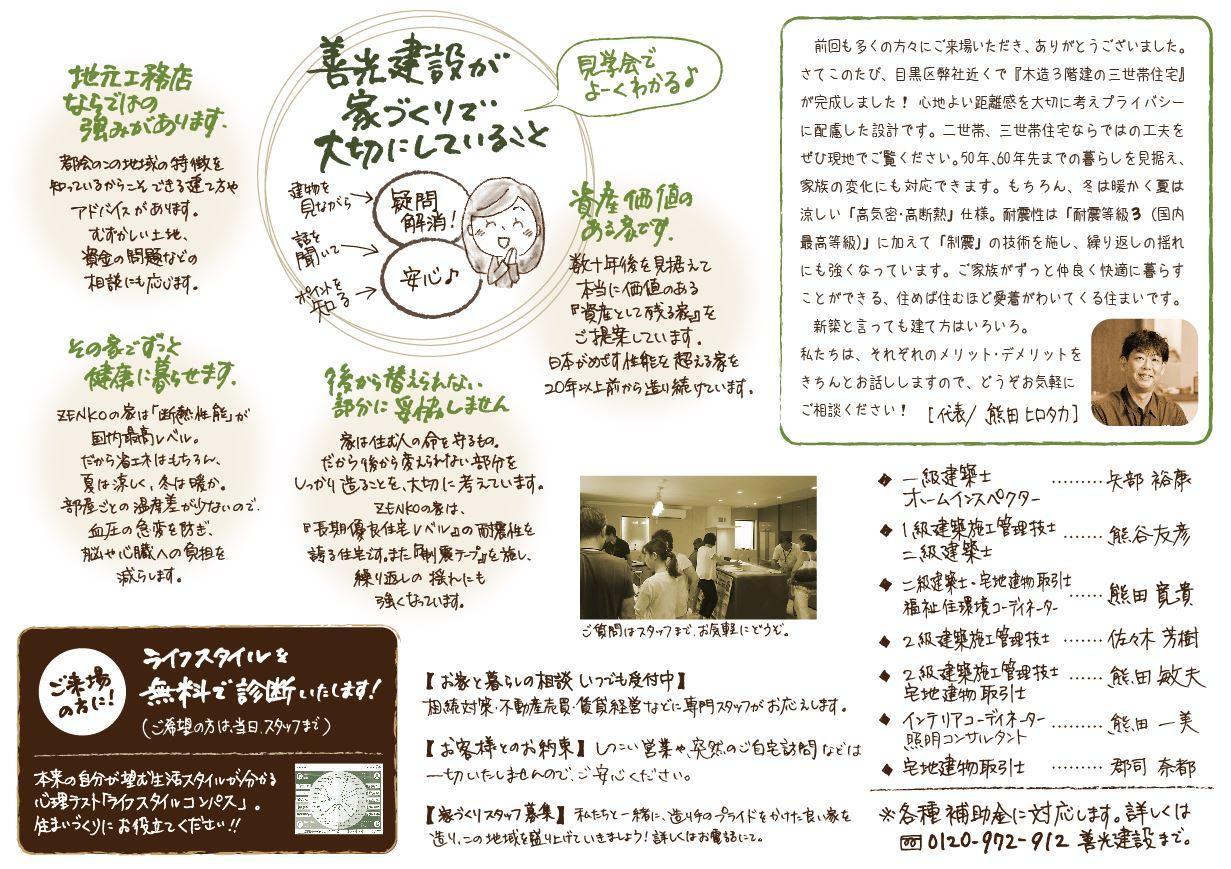 善光建設が
家づくりで
大切にしていること
見学会で
よーくわかる♪
建物を
見ながら
話を
聞いて
ポイントを
知る
疑問
解消!
安心♪
地元工務店
ならではの
強みがあります.
都会のこの地域の特徴を
知っているからこそできる建て方や
アドバイスがあります。
むずかしい土地、
資金の問題などの
相談にも応じます。
資産価値の
ある家です.
数十年後を見据えて
本当に価値のある
『資産として残る家』を
ご提案しています。
日本がめざす性能を超える家を
20年以上前から造り続けています。
その家でずっと
健康に暮らせます.
ZENKOの家は「断熱性能」が
国内最高レベル。
だから省エネはもちろん、
夏は涼しく、冬は暖か。
部屋ごとの温度差が少ないので、
血圧の急変を防ぎ、
脳や心臓への負担を
減らします。
後から替えられない
部分に妥協しません
家は住む人の命を守るもの。
だから後から変えられない部分を
しっかり造ることを、大切に考えています。
ZENKOの家は、
『長期優良住宅レベル』の耐震性を
誇る住宅です。また『制震テープ』を施し、
繰り返しの揺れにも
強くなっています。
前回も多くの方々にご来場いただき、ありがとうございました。
さてこのたび、目黒区弊社近くで『木造3階建の三世帯住宅』
が完成しました! 心地よい距離感を大切に考えプライバシー
に配慮した設計です。二世帯、三世帯住宅ならではの工夫を
ぜひ現地でご覧ください。50年、60年先までの暮らしを見据え、
家族の変化にも対応できます。もちろん、冬は暖かく夏は
涼しい「高気密・高断熱」仕様。耐震性は「耐震等級3(国内
最高等級)」に加えて「制震」の技術を施し、繰り返しの揺れ
にも強くなっています。ご家族がずっと仲良く快適に暮らす
ことができる、住めば住むほど愛着がわいてくる住まいです。
新築と言っても建て方はいろいろ。
私たちは、それぞれのメリット・デメリットを
きちんとお話ししますので、どうぞお気軽に
ご相談ください! [代表/ 熊田ヒロタカ]
ご質問はスタッフまで、お気軽にどうぞ。
◆ 一級建築士
ホームインスペクター ········· 矢部 裕康
◆ 1級建築施工管理技士
二級建築士 ······· 熊谷友彦
◆ 二級建築士・宅地建物取引士
福祉住環境コーディネーター ······ 熊田 寛貴
◆ 2級建築施工管理技士 ······· 佐々木 芳樹
◆ 2級建築施工管理技士
宅地建物取引士 ······· 熊田 敏夫
◆ インテリアコーディネーター
照明コンサルタント ······· 熊田 一美
◆ 宅地建物取引士 ········· 郡司 奈都
※各種補助金に対応します。詳しくは
☎ 0120-972-912 善光建設まで。
ご来場
の方に!
ライフスタイルを
無料で診断いたします!
(ご希望の方は、当日、スタッフまで)
本来の自分が望む生活スタイルが分かる
心理テスト「ライフスタイルコンパス」。
住まいづくりにお役立てください!!
【お家と暮らしの相談 いつでも受付中】
相続対策・不動産売買・賃貸経営などに専門スタッフがお応えします。
【お客様とのお約束】しつこい営業や、突然のご自宅訪問などは
一切いたしませんので、ご安心ください。
【家づくりスタッフ募集】私たちと一緒に、造り手のプライドをかけた良い家を
造り、この地域を盛り上げていきましょう! 詳しくはお電話にて。